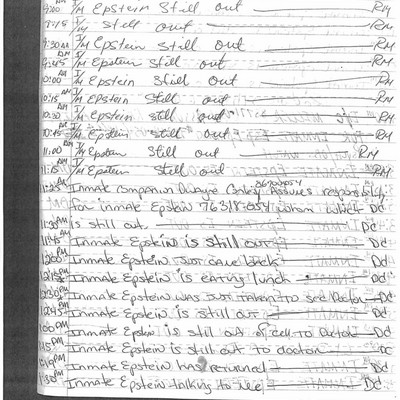 9:00 AM I/M Epstein Still out RM
9:15 I/M still out RM
9:30 AM I/M Epstein Still out RM
9:45 I/M Epstein Still out RM
10:00 AM I/M Epstein Still out RM
10:15 AM I/M Epstein Still out RM
10:30 AM I/M Epstein Still out RM
10:45 AM I/M Epstein Still out RM
11:00 AM I/M Epstein Still out RM
11:15 AM I/M Epstein Still out RM
11:25 Inmate Companion Assumes responsibility
For inmate Epstein 76318-054 whom which DC
11:30 AM Is still out. DC
11:45 AM Inmate Epstein is still out DC
12:00 PM Inmate Epstein Just came back DC
12:15 PM Inmate Epstein is eating lunch DC
12:30 PM Inmate Epstein was Just taken to see Doctor DC
12:45 PM Inmate Epstein is still out DC
1:00 PM Inmate Epstein is still out of cell to Doctor DC
1:15 PM Inmate Epstein is still out to doctor DC
1:19 PM Inmate Epstein has returned DC
1:30 PM Inmate Epstein talking to me DC